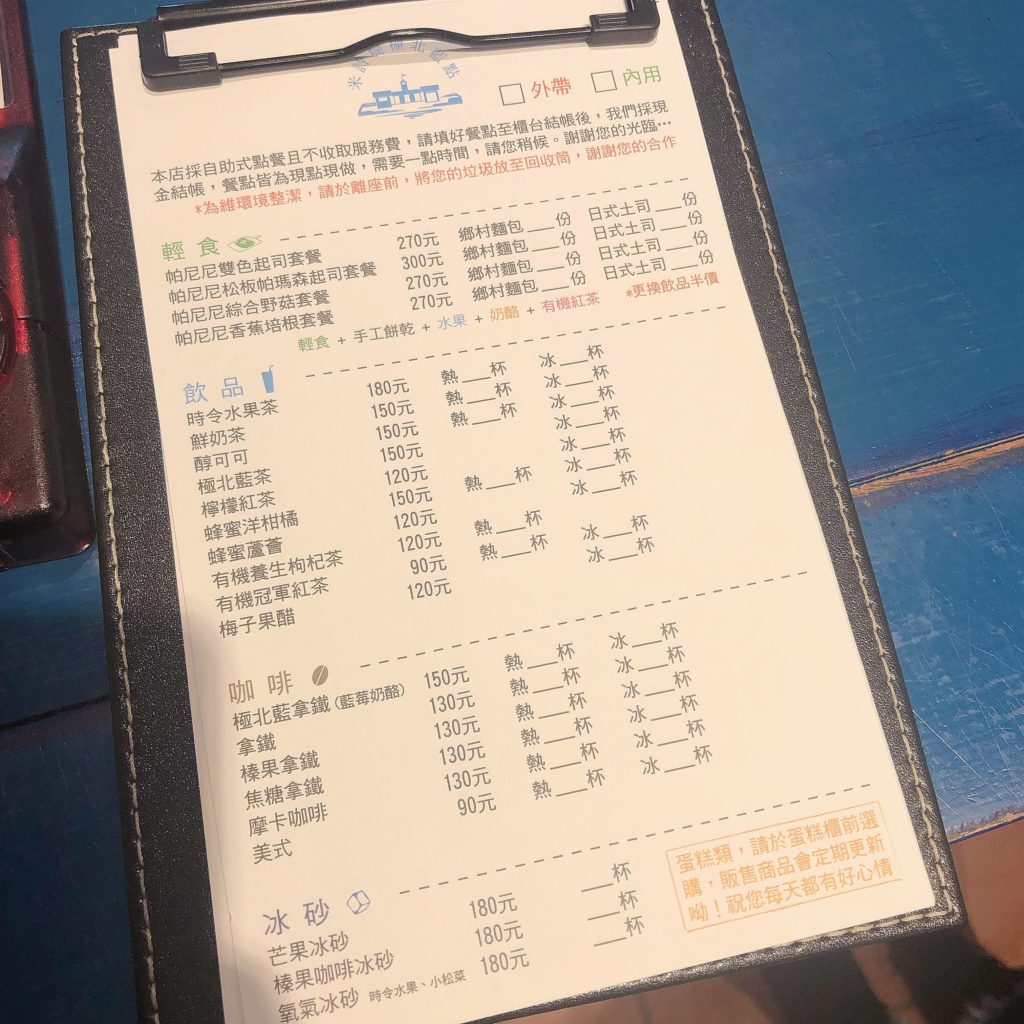 米詩堤極北藍點
□外帶 □內用
本店採自助式點餐且不收取服務費，請填好餐點至櫃台結帳後，我們採現
金結帳，餐點皆為現點現做，需要一點時間，請您稍候。謝謝您的光臨…
*為維環境整潔，請於離座前，將您的垃圾放至回收筒，謝謝您的合作
輕食
帕尼尼雙色起司套餐 270元 鄉村麵包___份 日式土司___份
帕尼尼松板帕瑪森起司套餐 300元 鄉村麵包___份 日式土司___份
帕尼尼綜合野菇套餐 270元 鄉村麵包___份 日式土司___份
帕尼尼香蕉培根套餐 270元 鄉村麵包___份 日式土司___份
輕食 + 手工餅乾 + 水果 + 奶酪 + 有機紅茶 *更換飲品半價
飲品
時令水果茶 180元 熱___杯 冰___杯
鮮奶茶 150元 熱___杯 冰___杯
醇可可 150元 熱___杯 冰___杯
極北藍茶 150元 冰___杯
檸檬紅茶 120元 冰___杯
蜂蜜洋柑橘 150元 熱___杯 冰___杯
蜂蜜蘆薈 120元 冰___杯
有機養生枸杞茶 120元 熱___杯
有機冠軍紅茶 90元 熱___杯 冰___杯
梅子果醋 120元 冰___杯
咖啡
極北藍拿鐵(藍莓奶酪) 150元 熱___杯 冰___杯
拿鐵 130元 熱___杯 冰___杯
榛果拿鐵 130元 熱___杯 冰___杯
焦糖拿鐵 130元 熱___杯 冰___杯
摩卡咖啡 130元 熱___杯 冰___杯
美式 90元 熱___杯 冰___杯
冰砂
芒果冰砂 180元 ___杯
榛果咖啡冰砂 180元 ___杯
氧氣冰砂 時令水果、小松菜 180元 ___杯
蛋糕類，請於蛋糕櫃前選
購，販售商品會定期更新
呦！祝您每天都有好心情